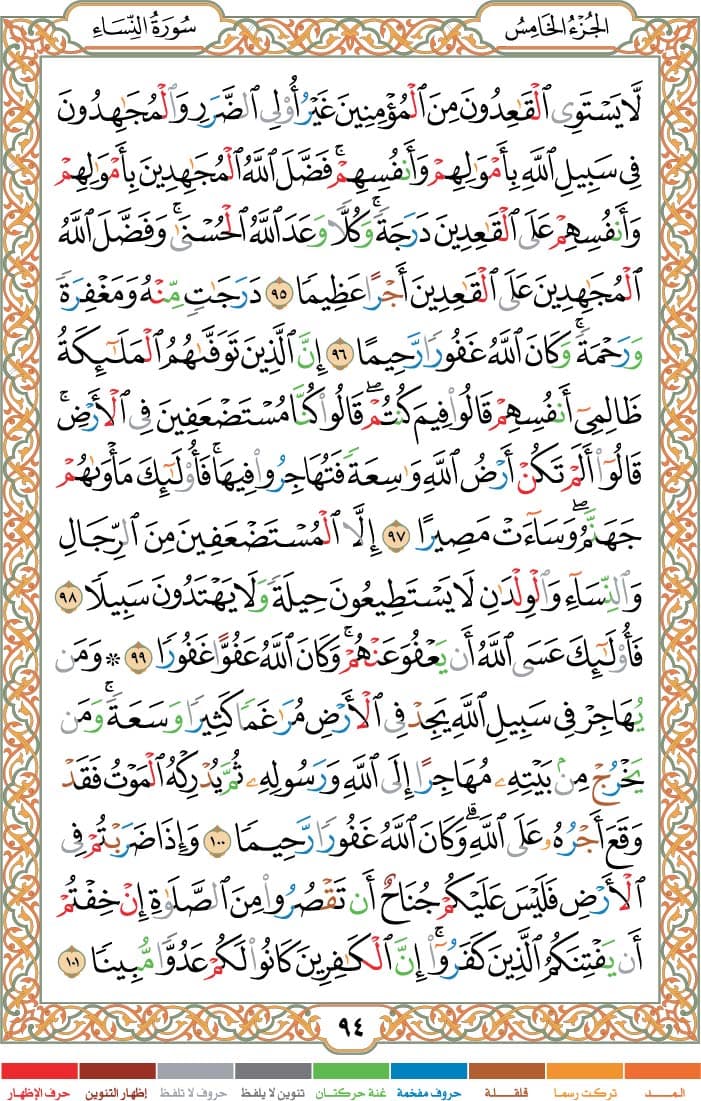 الجُزْءُ الخَامِسُ
سُورَةُ النِّسَاءِ
لَّا يَسْتَوِي الْقَاعِدُونَ مِنَ الْمُؤْمِنِينَ غَيْرُ أُو۟لِي الضَّرَرِ وَالْمُجَاهِدُونَ
فِي سَبِيلِ اللَّهِ بِأَمْوَالِهِمْ وَأَنفُسِهِمْ ۚ فَضَّلَ اللَّهُ الْمُجَاهِدِينَ بِأَمْوَالِهِمْ
وَأَنفُسِهِمْ عَلَى الْقَاعِدِينَ دَرَجَةً ۚ وَكُلًّا وَعَدَ اللَّهُ الْحُسْنَىٰ ۚ وَفَضَّلَ اللَّهُ
الْمُجَاهِدِينَ عَلَى الْقَاعِدِينَ أَجْرًا عَظِيمًا ٩٥ دَرَجَاتٍ مِّنْهُ وَمَغْفِرَةً
وَرَحْمَةً ۚ وَكَانَ اللَّهُ غَفُورًا رَّحِيمًا ٩٦ إِنَّ الَّذِينَ تَوَفَّىٰهُمُ الْمَلَٰٓئِكَةُ
ظَالِمِيٓ أَنفُسِهِمْ قَالُوا۟ فِيمَ كُنتُمْ ۖ قَالُوا۟ كُنَّا مُسْتَضْعَفِينَ فِي الْأَرْضِ ۚ
قَالُوٓا۟ أَلَمْ تَكُنْ أَرْضُ اللَّهِ وَاسِعَةً فَتُهَاجِرُوا۟ فِيهَا ۚ فَأُو۟لَٰٓئِكَ مَأْوَىٰهُمْ
جَهَنَّمُ ۖ وَسَآءَتْ مَصِيرًا ٩٧ إِلَّا الْمُسْتَضْعَفِينَ مِنَ الرِّجَالِ
وَالنِّسَآءِ وَالْوِلْدَانِ لَا يَسْتَطِيعُونَ حِيلَةً وَلَا يَهْتَدُونَ سَبِيلًا ٩٨
فَأُو۟لَٰٓئِكَ عَسَى اللَّهُ أَن يَعْفُوَ عَنْهُمْ ۚ وَكَانَ اللَّهُ عَفُوًّا غَفُورًا ٩٩ ۞ وَمَن
يُهَاجِرْ فِي سَبِيلِ اللَّهِ يَجِدْ فِي الْأَرْضِ مُرَاغَمًا كَثِيرًا وَسَعَةً ۚ وَمَن
يَخْرُجْ مِنۢ بَيْتِهِۦ مُهَاجِرًا إِلَى اللَّهِ وَرَسُولِهِۦ ثُمَّ يُدْرِكْهُ الْمَوْتُ فَقَدْ
وَقَعَ أَجْرُهُۥ عَلَى اللَّهِ ۗ وَكَانَ اللَّهُ غَفُورًا رَّحِيمًا ١٠٠ وَإِذَا ضَرَبْتُمْ فِي
الْأَرْضِ فَلَيْسَ عَلَيْكُمْ جُنَاحٌ أَن تَقْصُرُوا۟ مِنَ الصَّلَوٰةِ إِنْ خِفْتُمْ
أَن يَفْتِنَكُمُ الَّذِينَ كَفَرُوٓا۟ ۚ إِنَّ الْكَافِرِينَ كَانُوا۟ لَكُمْ عَدُوًّا مُّبِينًا ١٠١
٩٤
المـــد
تركت رسما
قلقـــلة
حروف مفخمة
غنة حركتـان
تنوين لا يلفظ
حروف لا تلفظ
إظهار التنوين
حرف الإظهار